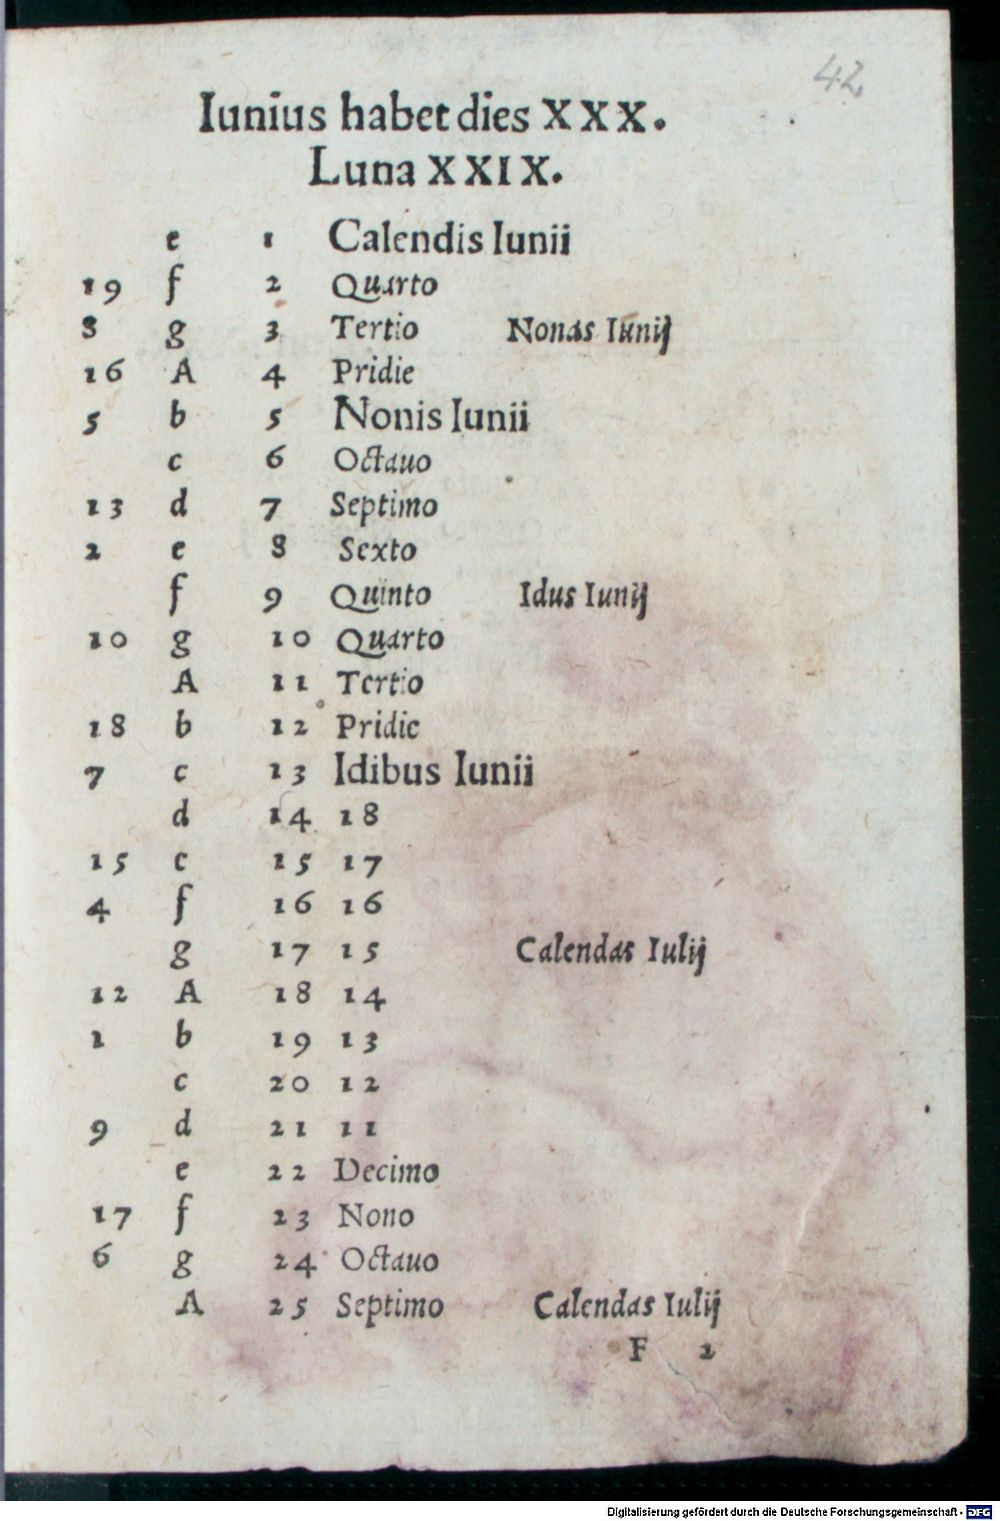 42
Iunius habet dies XXX.
Luna XXIX.
e 1 Calendis Iunii
19 f 2 Quarto
8 g 3 Tertio Nonas Iunij
16 A 4 Pridie
5 b 5 Nonis Iunii
c 6 Octauo
13 d 7 Septimo
2 e 8 Sexto
f 9 Quinto Idus Iunij
10 g 10 Quarto
A 11 Tertio
18 b 12 Pridie
7 c 13 Idibus Iunii
d 14 18
15 e 15 17
4 f 16 16
g 17 15 Calendas Iulij
12 A 18 14
1 b 19 13
c 20 12
9 d 21 11
e 22 Decimo
17 f 23 Nono
6 g 24 Octauo
A 25 Septimo Calendas Iulij
F 2
Digitalisierung gefördert durch die Deutsche Forschungsgemeinschaft - DFG